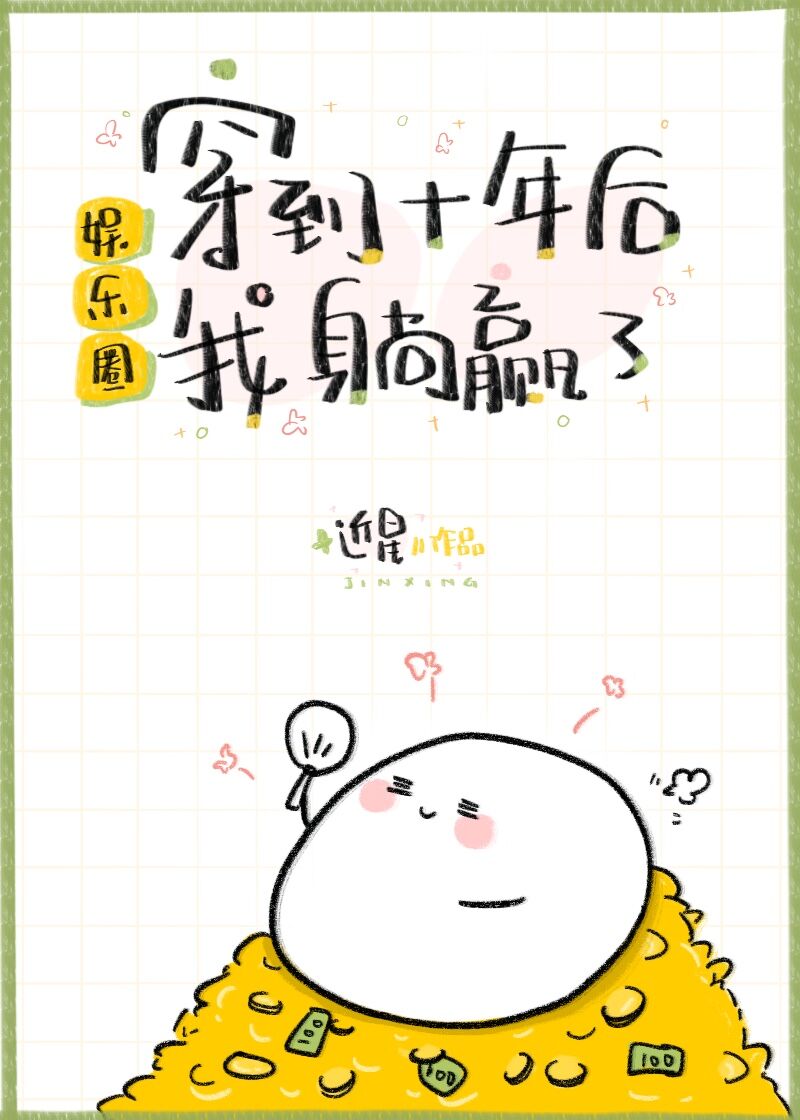 穿到十年后
我躺赢了
娱乐圈
近星//作品
JINXING
100
100
100